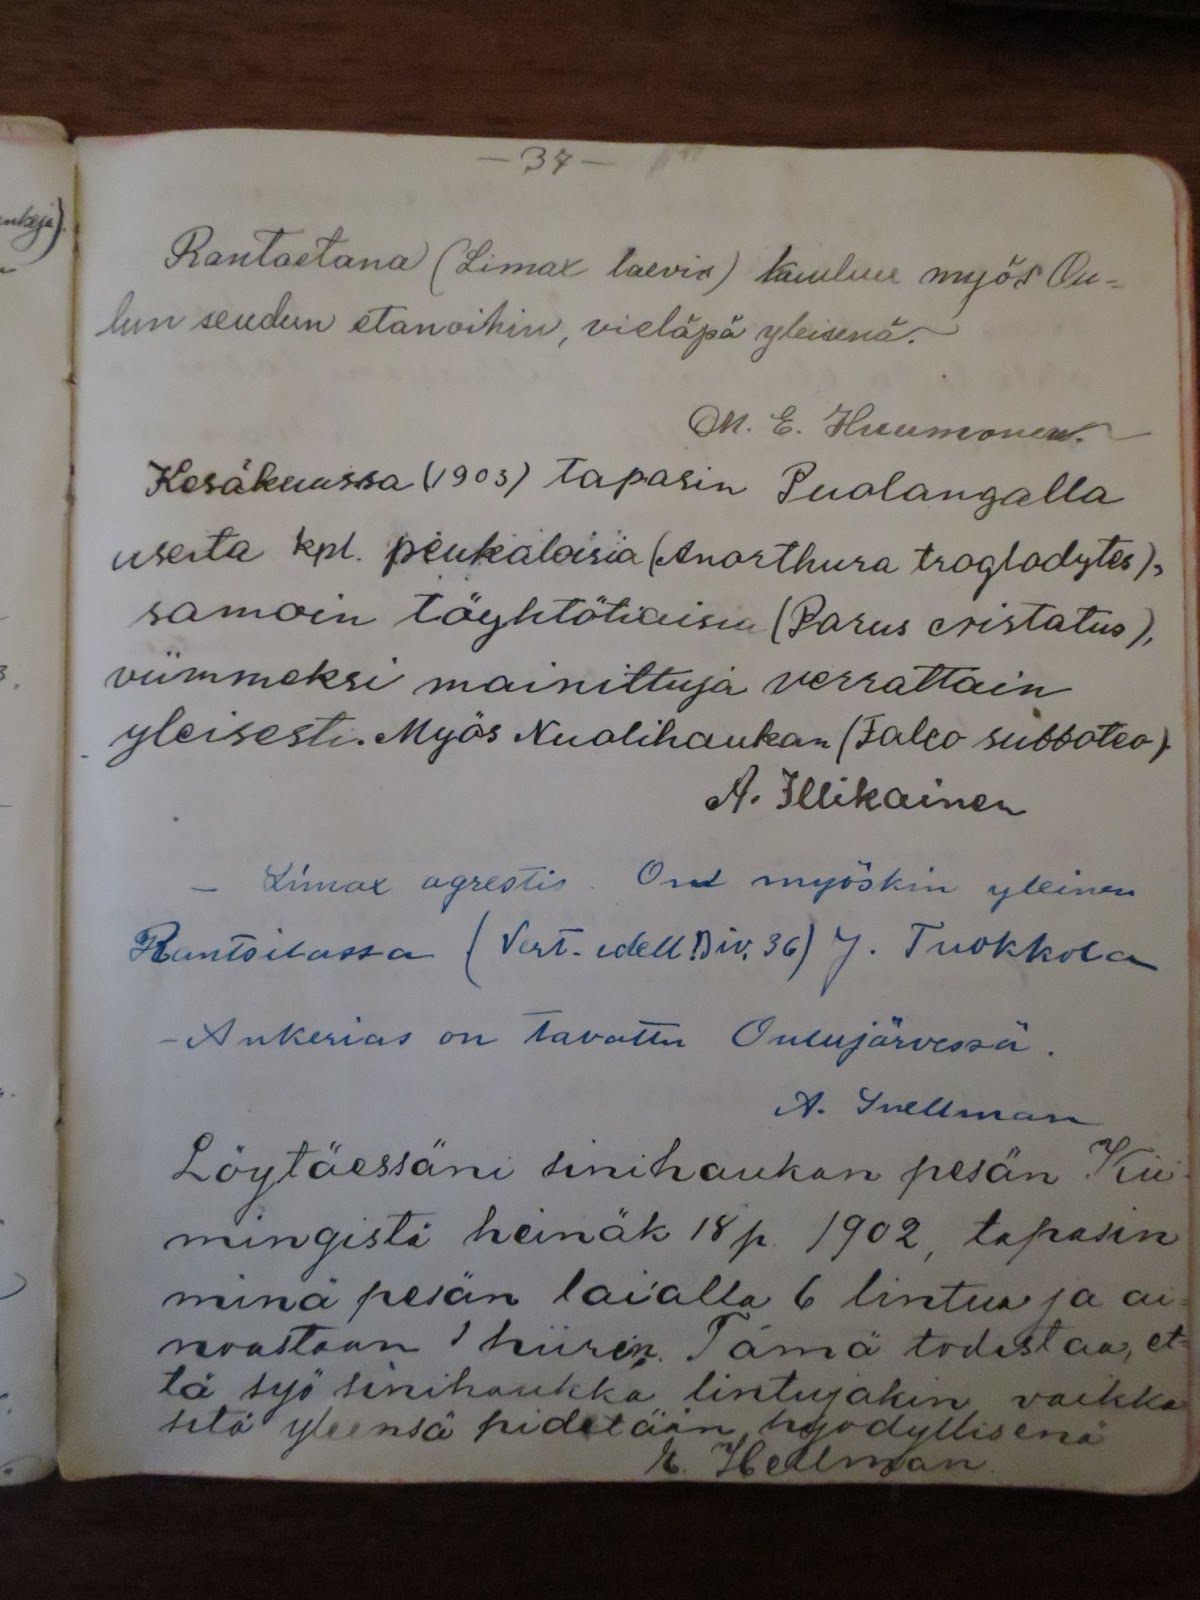 — 37 —
Rantaetana (Limax laevis) kuuluu myös Ou-
lun seudun etanoihin, vieläpä yleisenä.
M. E. Huumonen.
Kesäkuussa (1903) tapasin Puolangalla
useita kpl. peukaloisia (Anorthura troglodytes),
samoin töyhtötiaisia (Parus cristatus),
viimmeksi mainittuja verrattain
yleisesti. Myös Nuolihaukan (Falco subboteo).
A. Illikainen
– Limax agrestis. On myöskin yleinen
Rantsilassa (Vert. edell. siv. 36) J. Tuokkola
– Ankerias on tavattu Oulujärvessä.
A. Snellman
Löytäessäni sinihaukan pesän Kii-
mingistä heinäk 18 p. 1902, tapasin
minä pesän laialla 6 lintua ja ai-
noastaan 1 hiiren. Tämä todistaa, et-
tä syö sinihaukka lintujakin vaikka
sitä yleensä pidetään hyödyllisenä
E. Hellman